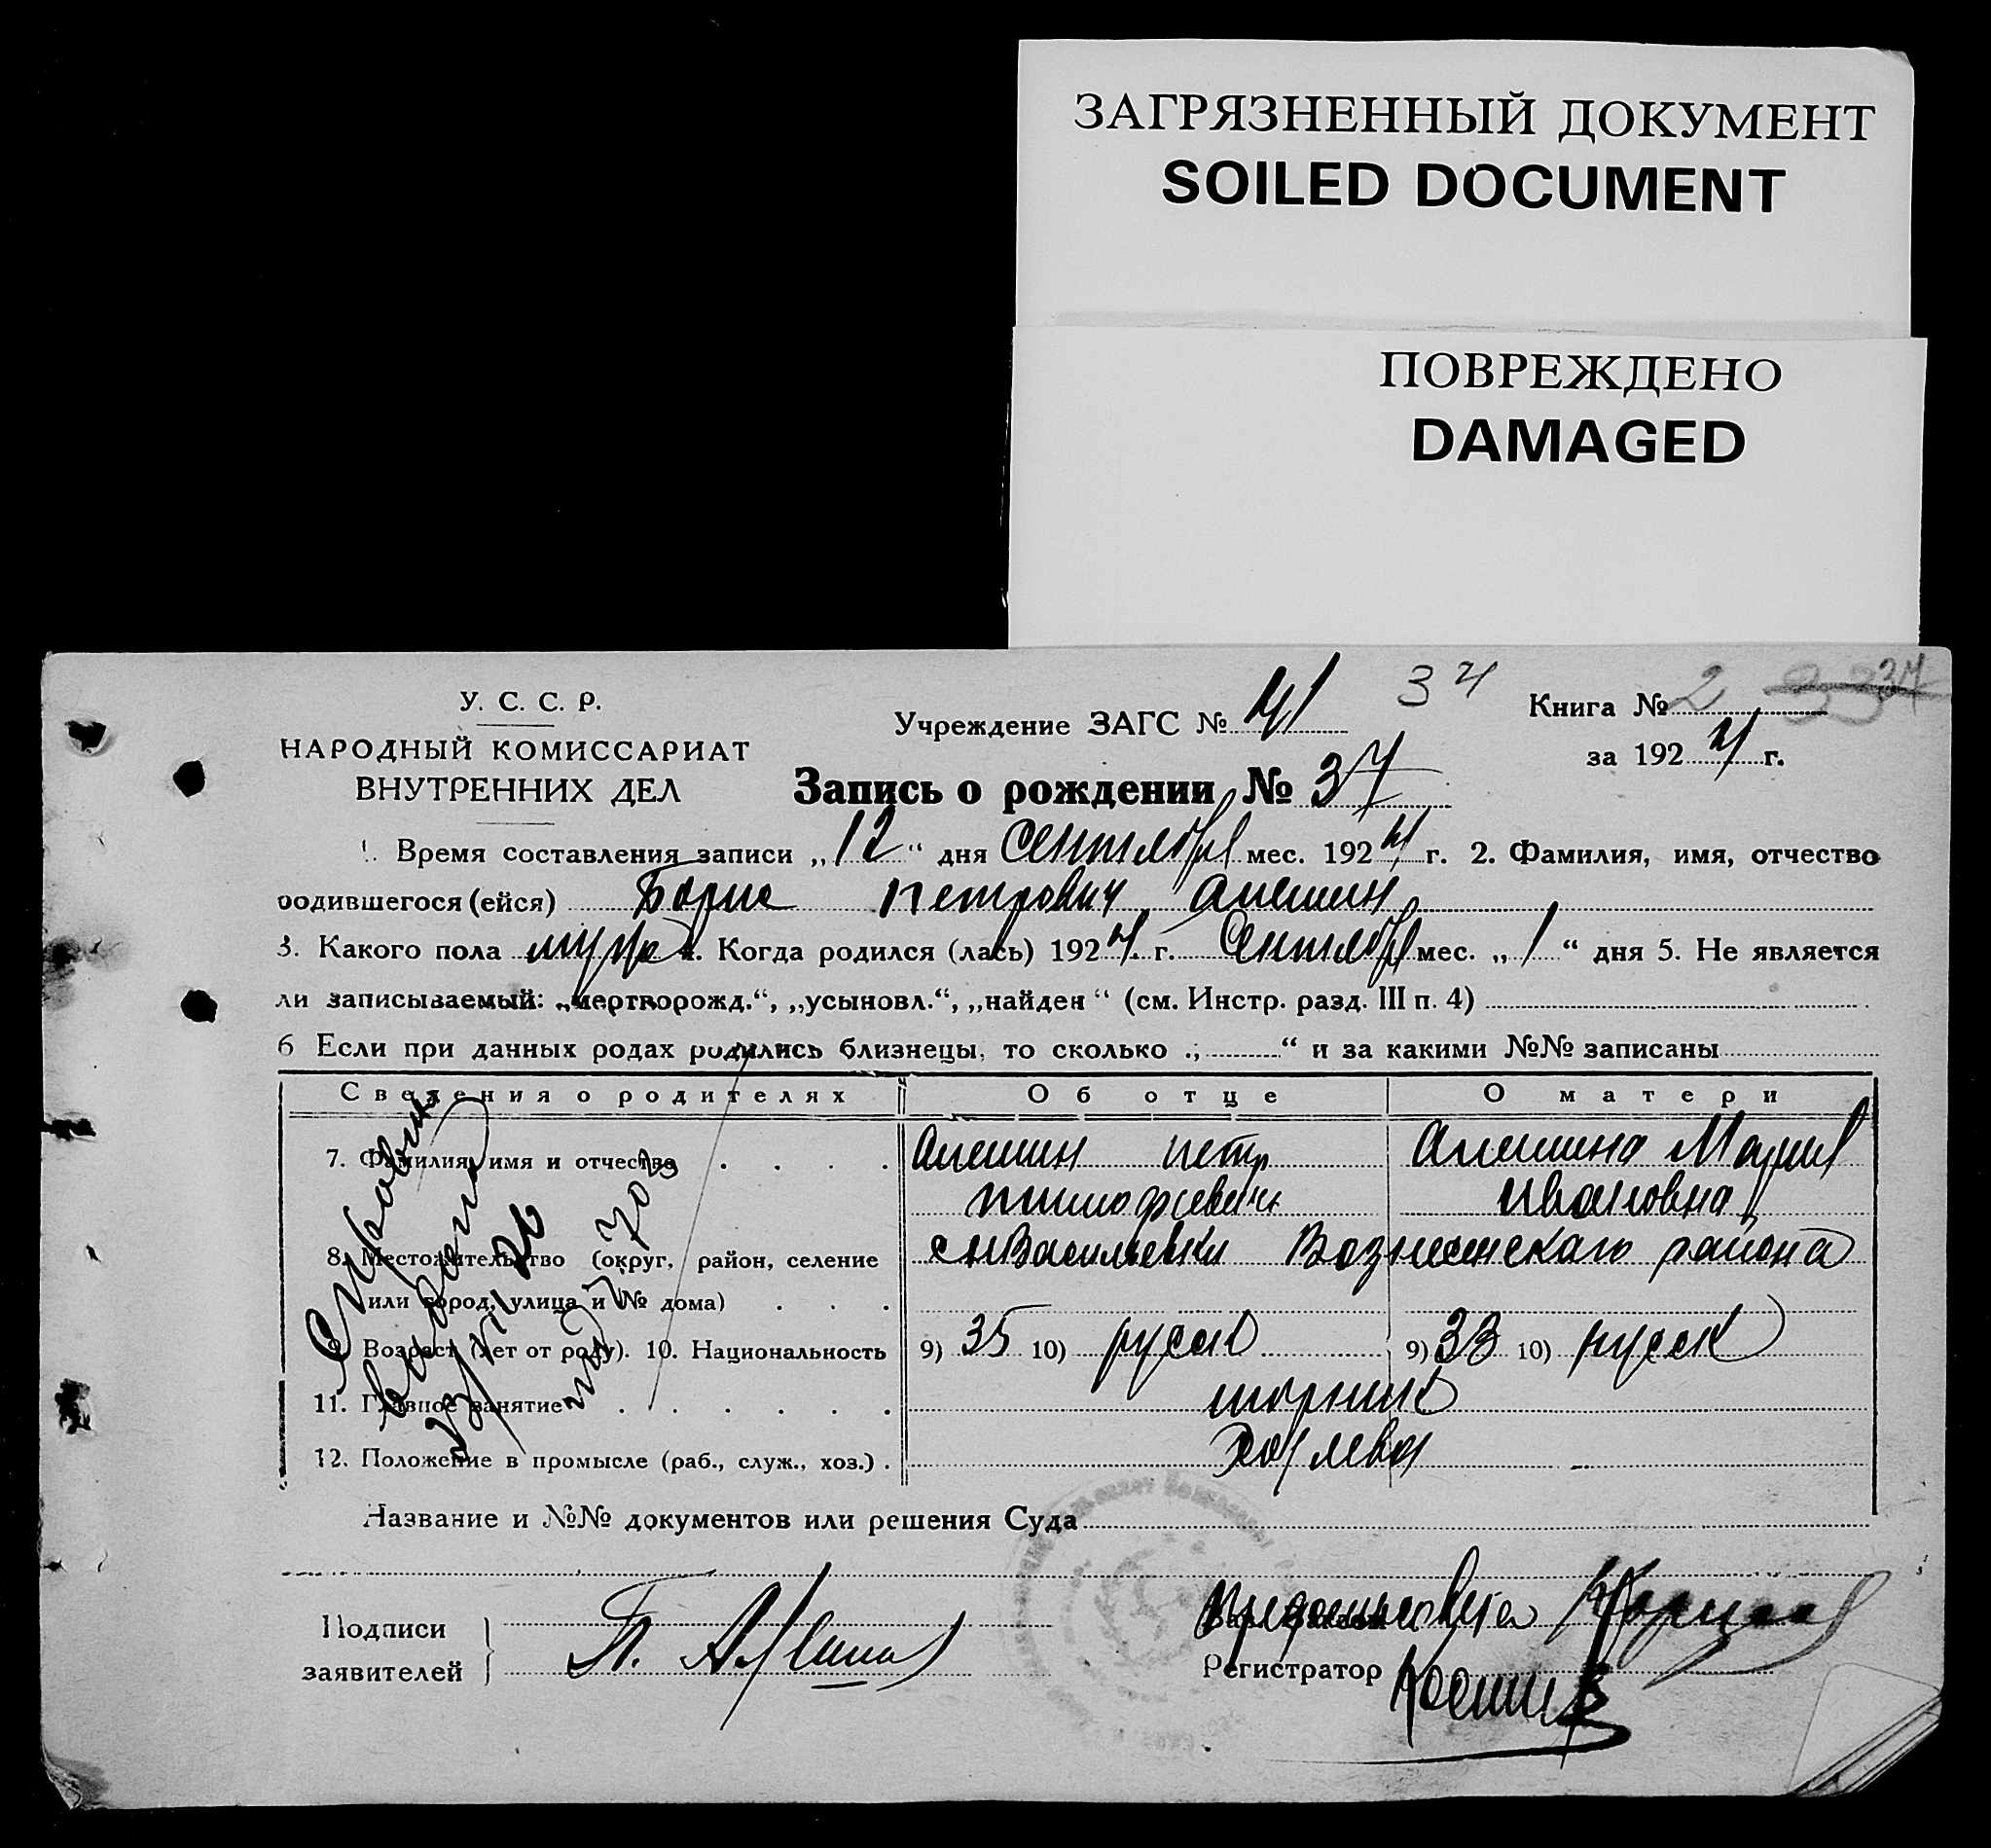 ЗАГРЯЗНЕННЫЙ ДОКУМЕНТ
SOILED DOCUMENT
ПОВРЕЖДЕНО
DAMAGED
У. С. С. Р.
НАРОДНЫЙ КОМИССАРИАТ
ВНУТРЕННИХ ДЕЛ
Учреждение ЗАГС №
Книга № 2
за 1924 г.
Запись о рождении № 37
1. Время составления записи „12“ дня Сентября мес. 1924 г. 2. Фамилия, имя, отчество
родившегося (ейся) Борис Петрович Алешин
3. Какого пола муж 4. Когда родился (лась) 1924 г. Сентября мес. „1“ дня 5. Не является
ли записываемый: „мертворожд.“, „усыновл.“, „найден“ (см. Инстр. разд. III п. 4)
6 Если при данных родах родились близнецы, то сколько „ “ и за какими №№ записаны
Сведения о родителях Об отце О матери
7. Фамилия, имя и отчество Алешин Петр Алешина Мария
Тимофеевич Ивановна
8. Местожительство (округ, район, селение Васильевки Вознесенскаго района
или город, улица и № дома)
9. Возраст (лет от роду). 10. Национальность 9) 35 10) русск 9) 33 10) русск
11. Главное занятие
12. Положение в промысле (раб., служ., хоз.)
Название и №№ документов или решения Суда
Подписи
заявителей
Регистратор